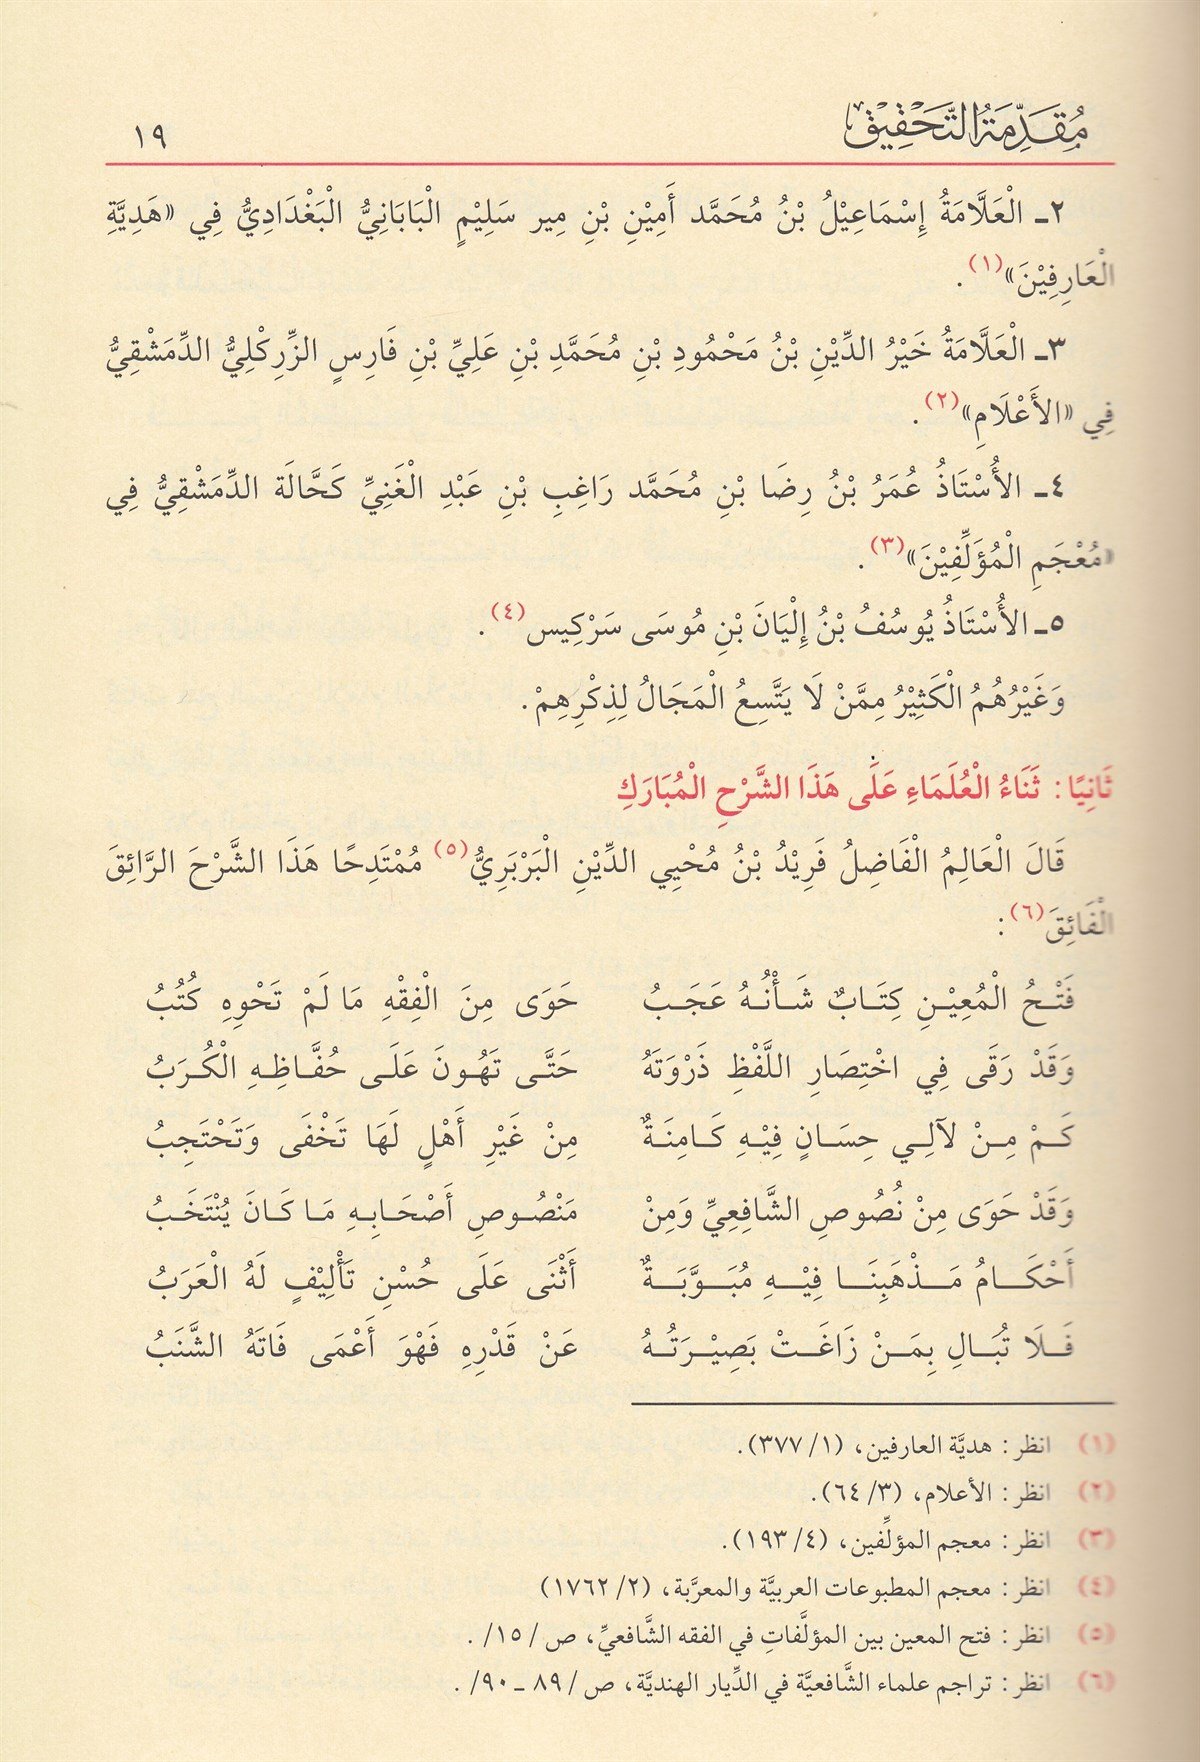 مُقَدِّمَةُ التَّحْقِيْقِ ١٩
٢ـ الْعَلَّامَةُ إِسْمَاعِيْلُ بْنُ مُحَمَّد أَمِيْنِ بْنِ مِير سَلِيْمٍ الْبَابَانِيُّ الْبَغْدَادِيُّ فِي «هَدِيَّةِ
الْعَارِفِيْنَ»(١).
٣ـ الْعَلَّامَةُ خَيْرُ الدِّيْنِ بْنُ مَحْمُودِ بْنِ مُحَمَّدِ بْنِ عَلِيِّ بْنِ فَارِسٍ الزِّرِكْلِيُّ الدِّمَشْقِيُّ
فِي «الأَعْلَامِ»(٢).
٤ـ الأُسْتَاذُ عُمَرُ بْنُ رِضَا بْنِ مُحَمَّد رَاغِبِ بْنِ عَبْدِ الْغَنِيِّ كَحَّالَة الدِّمَشْقِيُّ فِي
«مُعْجَمِ الْمُؤَلِّفِيْنَ»(٣).
٥ـ الأُسْتَاذُ يُوسُفُ بْنُ إِلْيَانَ بْنِ مُوسَى سَرْكِيس(٤).
وَغَيْرُهُمُ الْكَثِيْرُ مِمَّنْ لَا يَتَّسِعُ الْمَجَالُ لِذِكْرِهِمْ.
ثَانِيًا: ثَنَاءُ الْعُلَمَاءِ عَلَى هَذَا الشَّرْحِ الْمُبَارَكِ
قَالَ الْعَالِمُ الْفَاضِلُ فَرِيْدُ بْنُ مُحْيِي الدِّيْنِ الْبَرْبَرِيُّ(٥) مُمْتَدِحًا هَذَا الشَّرْحَ الرَّائِقَ
الْفَائِقَ(٦):
فَتْحُ الْمُعِيْنِ كِتَابٌ شَأْنُهُ عَجَبُ حَوَى مِنَ الْفِقْهِ مَا لَمْ تَحْوِهِ كُتُبُ
وَقَدْ رَقَى فِي اخْتِصَارِ اللَّفْظِ ذَرْوَتَهُ حَتَّى تَهُونَ عَلَى حُفَّاظِهِ الْكُرَبُ
كَمْ مِنْ لآلِي حِسَانٍ فِيْهِ كَامِنَةٌ مِنْ غَيْرِ أَهْلٍ لَهَا تَخْفَى وَتَحْتَجِبُ
وَقَدْ حَوَى مِنْ نُصُوصِ الشَّافِعِيِّ وَمِنْ مَنْصُوصِ أَصْحَابِهِ مَا كَانَ يُنْتَخَبُ
أَحْكَامُ مَذْهَبِنَا فِيْهِ مُبَوَّبَةٌ أَثْنَى عَلَى حُسْنِ تَأْلِيْفٍ لَهُ الْعَرَبُ
فَلَا تُبَالِ بِمَنْ زَاغَتْ بَصِيْرَتُهُ عَنْ قَدْرِهِ فَهْوَ أَعْمَى فَاتَهُ الشَّنَبُ
(١) انظر: هديَّة العارفين، (١/ ٣٧٧).
(٢) انظر: الأعلام، (٣/ ٦٤).
(٣) انظر: معجم المؤلِّفين، (٤/ ١٩٣).
(٤) انظر: معجم المطبوعات العربيَّة والمعرَّبة، (٢/ ١٧٦٢)
(٥) انظر: فتح المعين بين المؤلَّفاتِ في الفقه الشَّافعيِّ، ص / ١٥/ .
(٦) انظر: تراجم علماء الشَّافعيَّة في الدِّيار الهنديَّة، ص / ٨٩ ـ ٩٠/ .